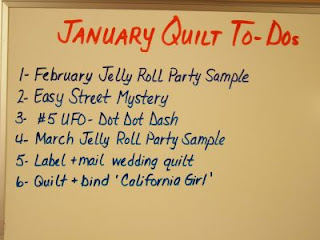 JANUARY QUILT TO-DOS
1- February Jelly Roll Party Sample
2- Easy Street Mystery
3- #5 UFO- Dot Dot Dash
4- March Jelly Roll Party Sample
5- Label + mail wedding quilt
6- Quilt + bind 'California Girl'